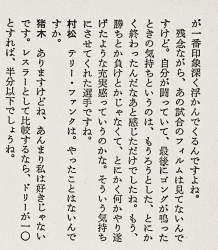 が一番印象深く浮かんでくるんですよね。
残念ながら、あの試合のフィルムは見てないんで
すけど。自分が闘っていて、最後にゴングが鳴った
ときの気持ちというのは、もうろうとした、とにか
く終わったんだなあと感じただけでしたね。もう、
勝ちとか負けとかじゃなくて、とにかく何かやり遂
げたような充実感っていうのかな。そういう気持ち
にさせてくれた選手ですね。
村松 テリー・ファンクは、やったことはないんで
すか。
猪木 ありますけどね、あんまり私は好きじゃない
です。レスラーとして比較するなら、ドリーが一〇
とすれば、半分以下でしょうね。